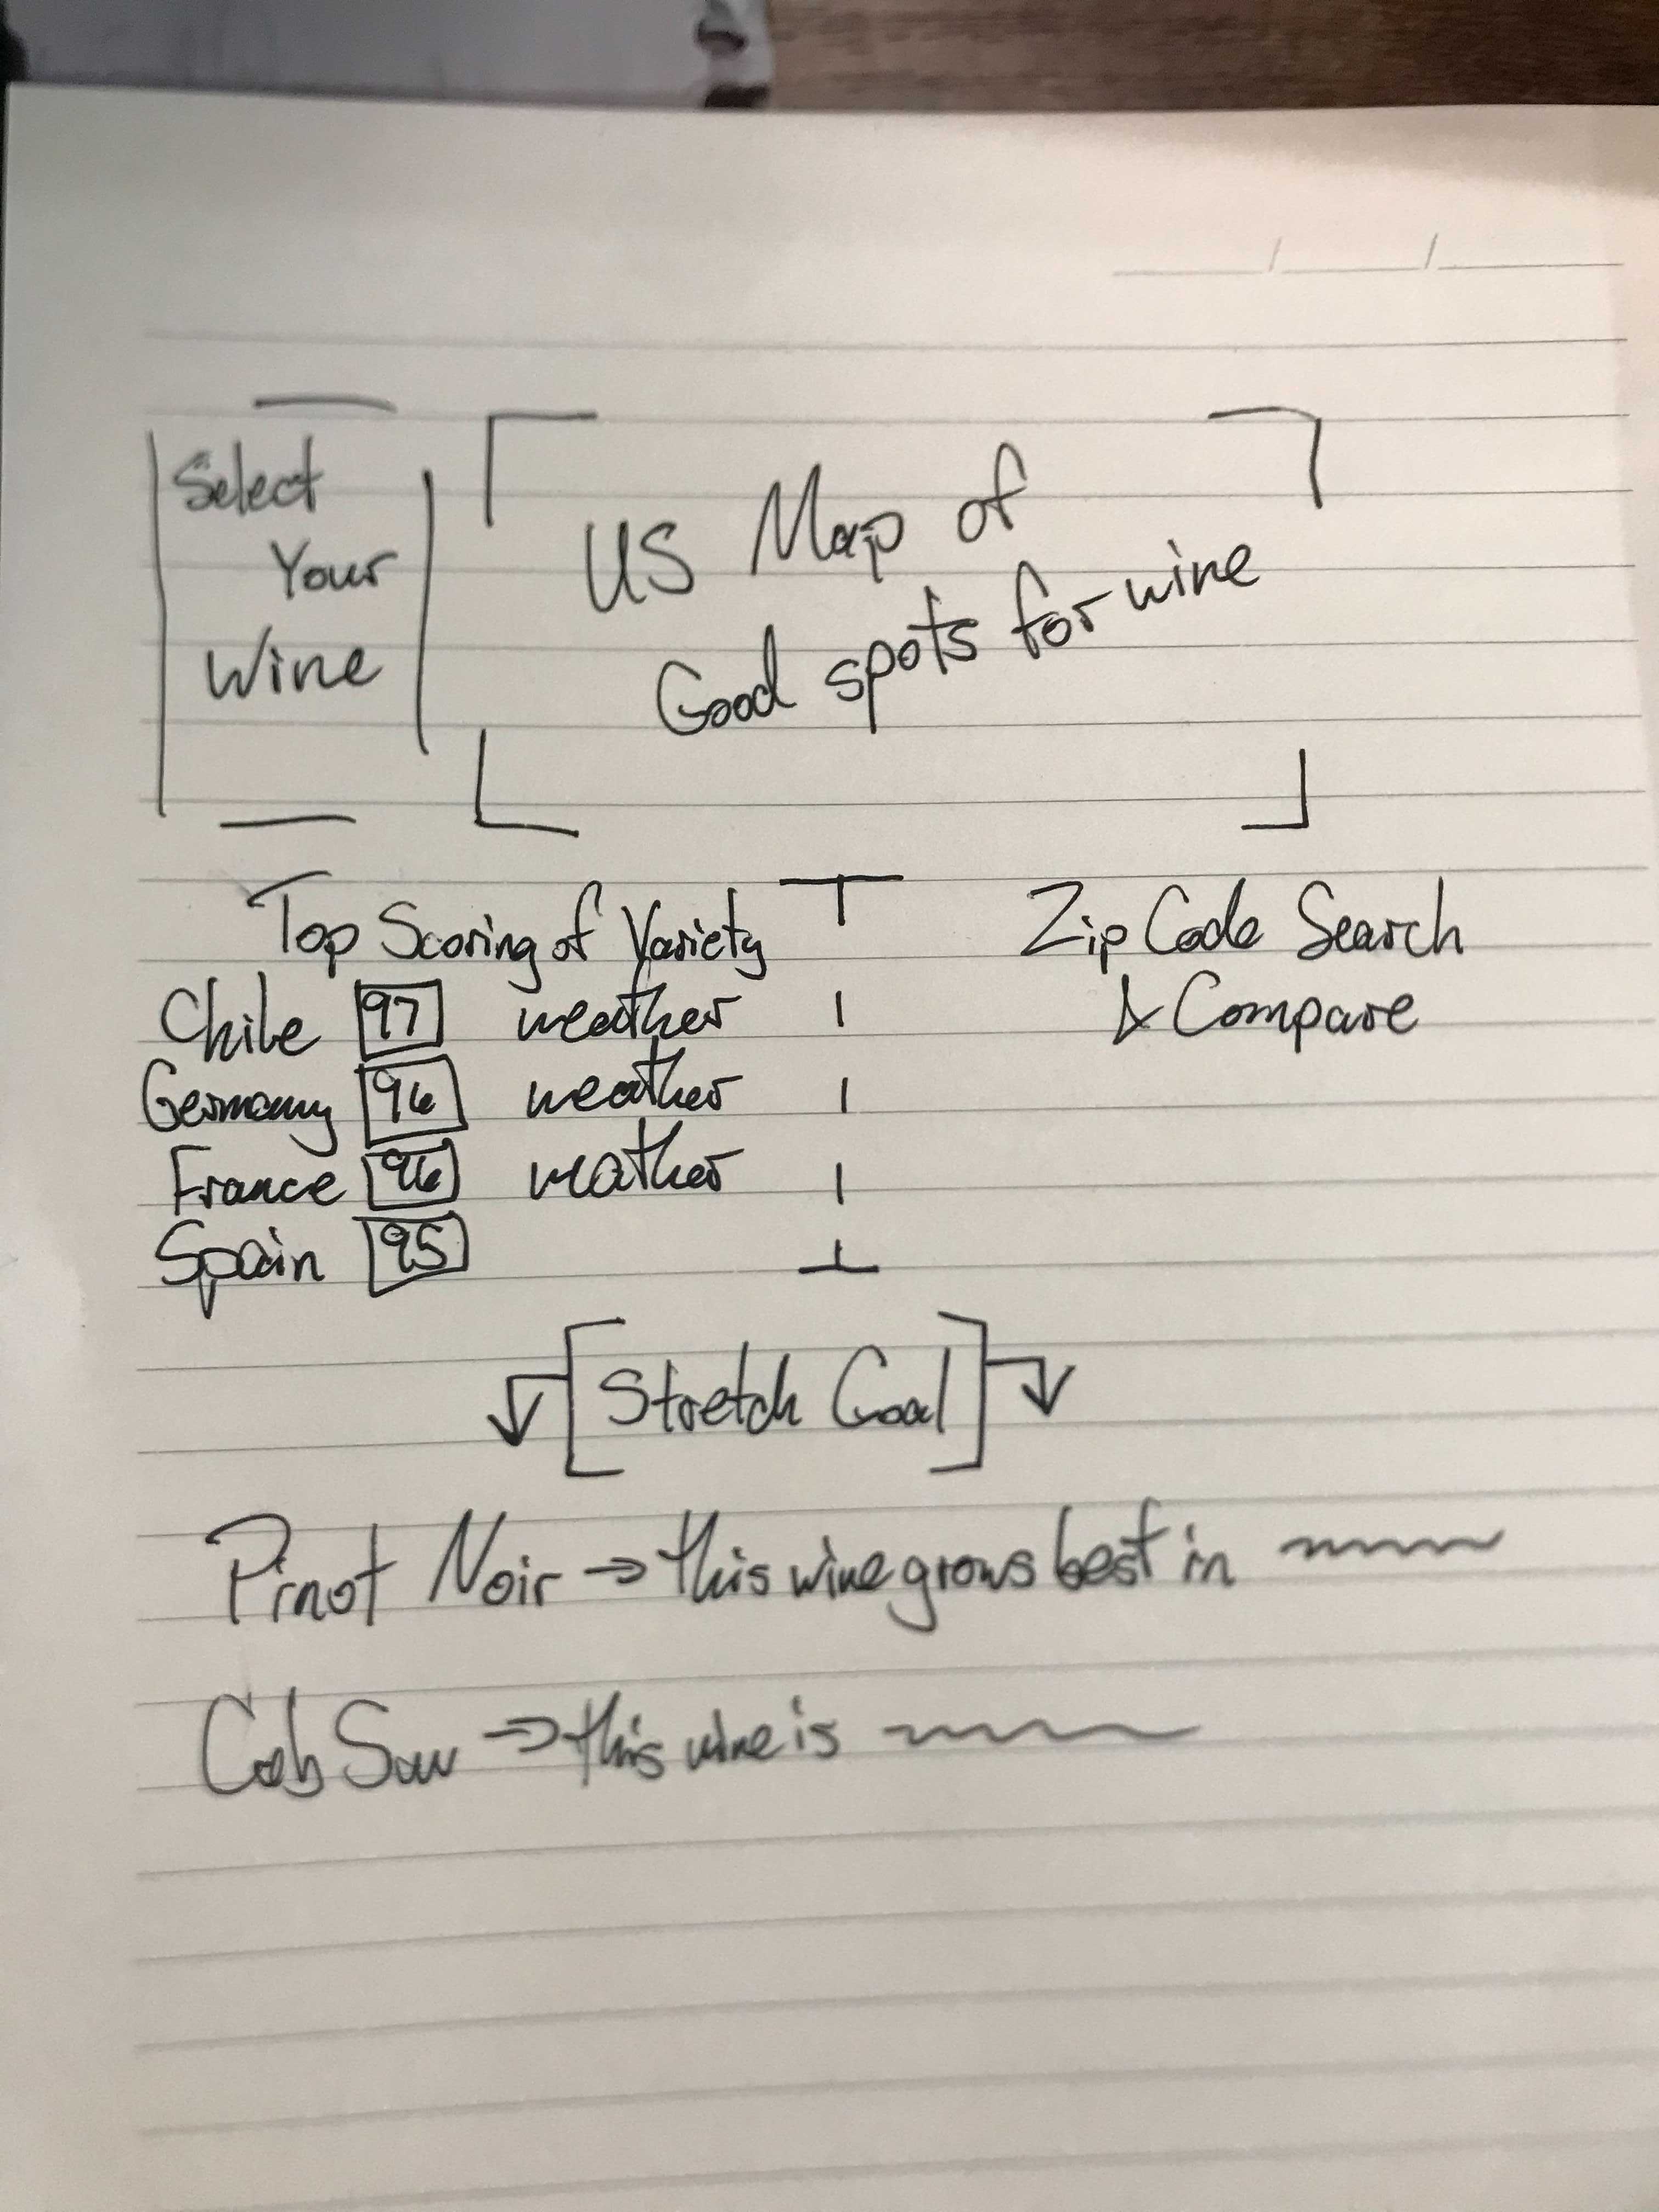 Select
Your
Wine
US Map of
Good spots for wine
Top Scoring of Variety
Chile 97 weather
Germany 96 weather
France 96 weather
Spain 95
Zip Code Search
& Compare
Stretch Goal
Pinot Noir → this wine grows best in
Cab Sauv → this wine is